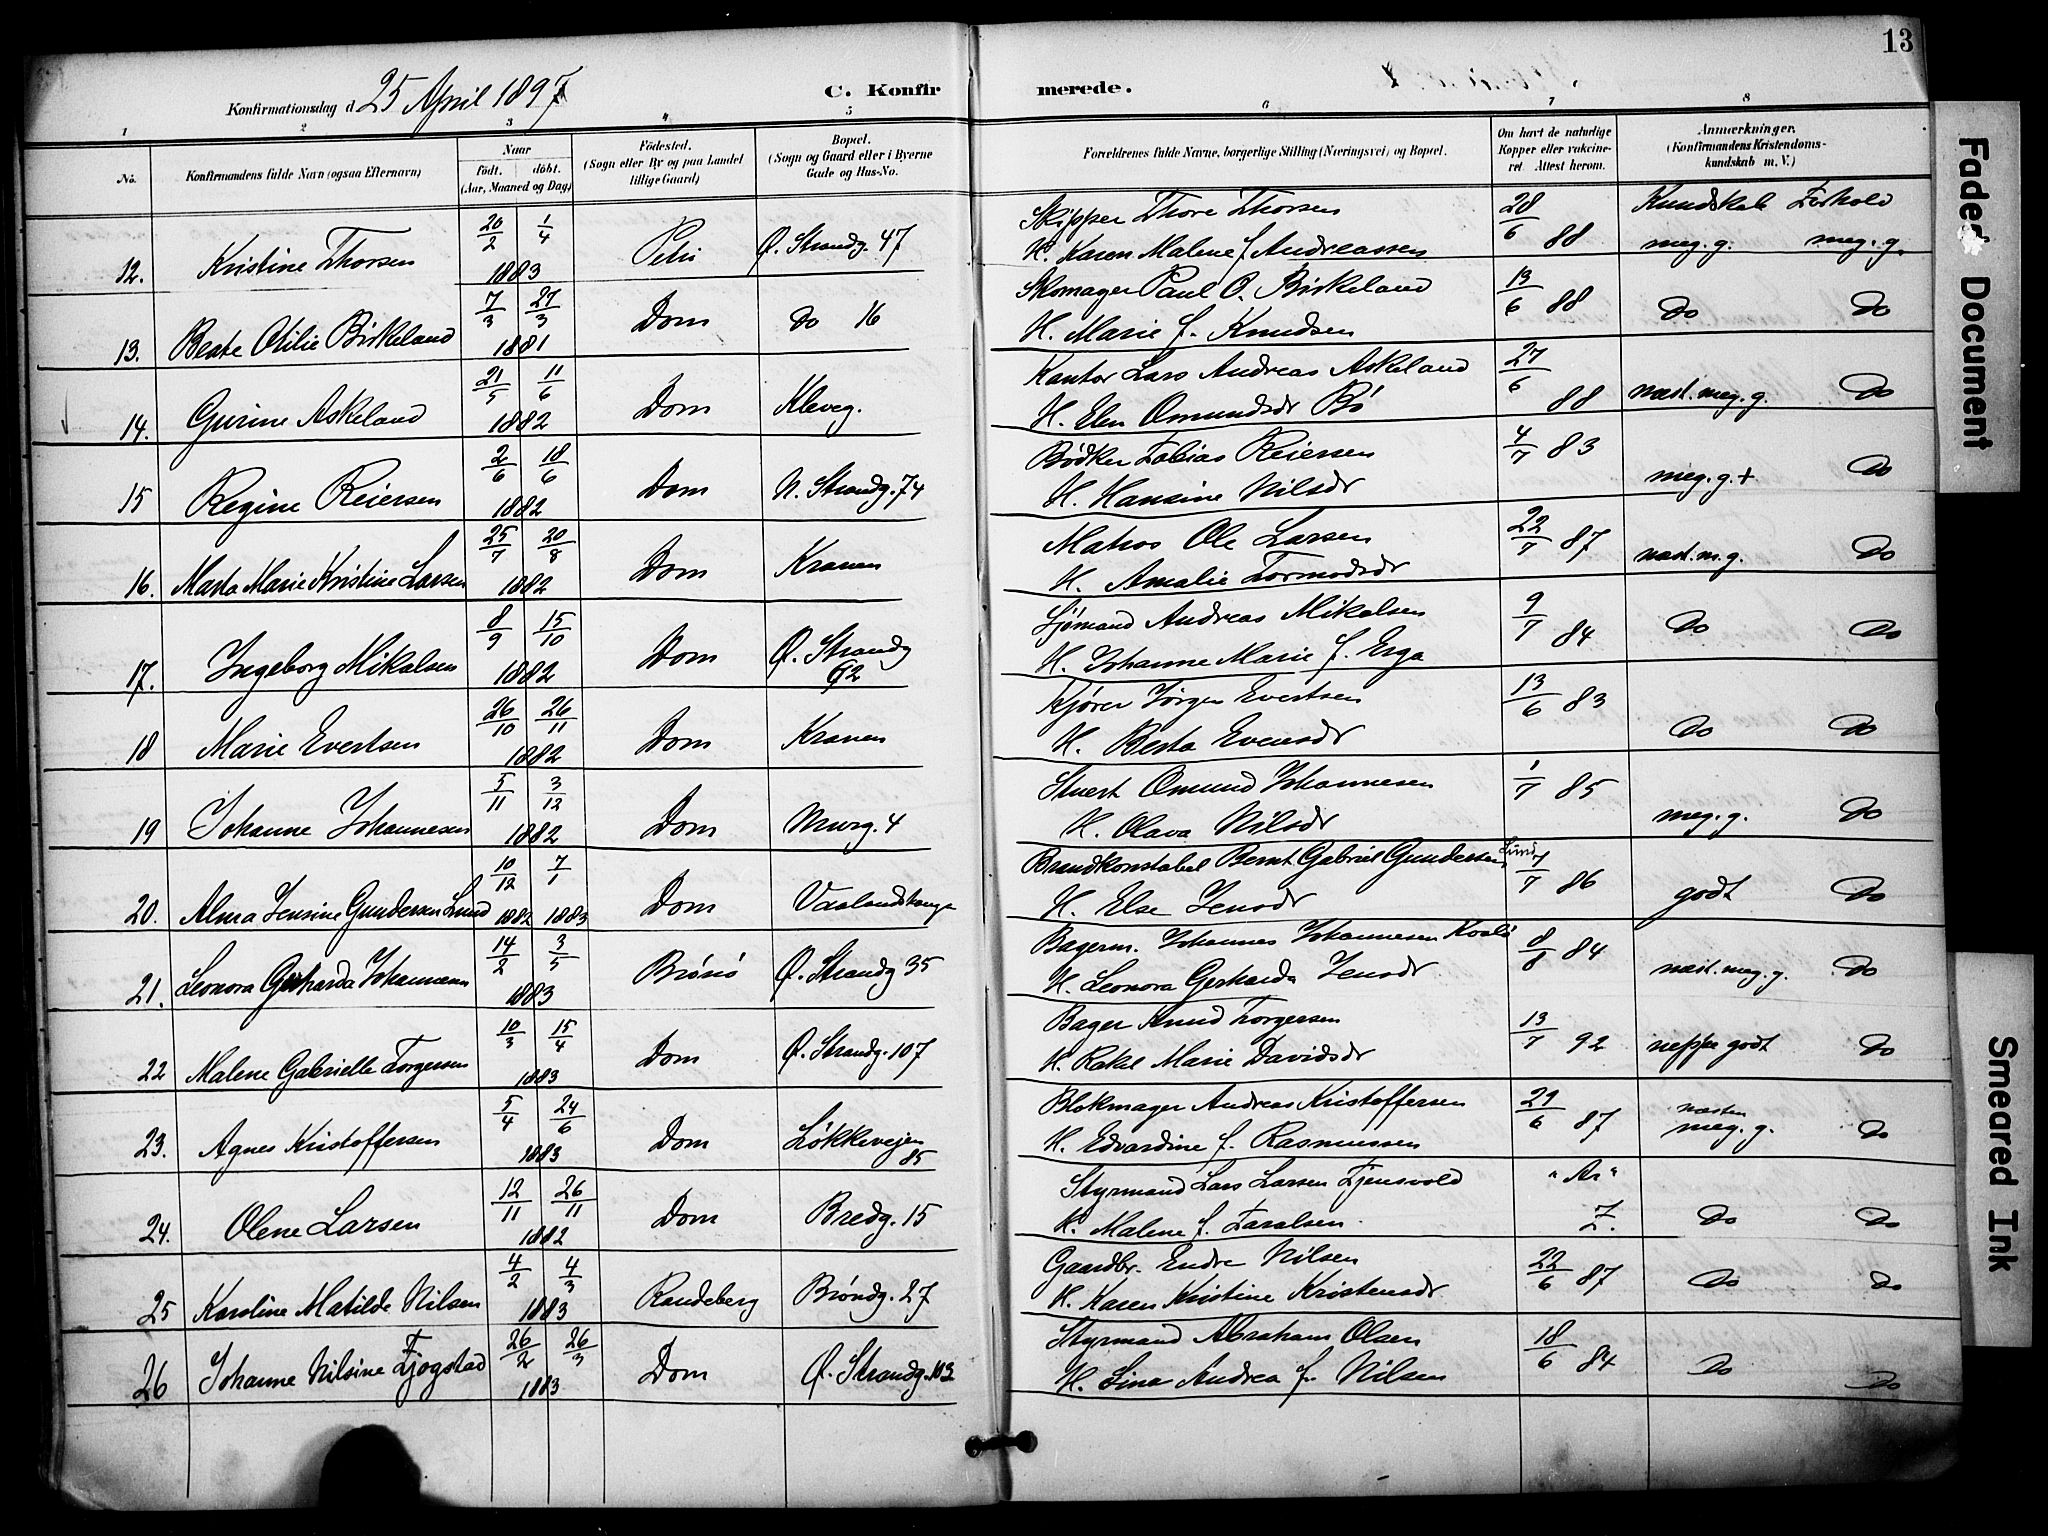 13
Konfirmationsdag d. 25 April 1897
C. Konfirmerede.
1 2 3 4 5 6 7 8
No. Konfirmandens fulde Navn (ogsaa Efternavn) Naar födt. döbt. (Aar, Maaned og Dag) Födested. (Sogn eller By og paa Landet tillige Gaard) Bopæl. (Sogn og Gaard eller i Byerne Gade og Hus-No. Forældrenes fulde Navne, borgerlige Stilling (Næringsvei) og Bopæl. Om havt de naturlige Kopper eller vakcineret. Attest herom. Anmærkninger. (Konfirmandens Kristendomskundskab m. V.)
Kundskab Forhold
12. Kristine Thorsen 20/2 1/4 1883 Petri Ø. Strandg. 47 Skipper Thore Thorsen H. Karen Malene f. Andreassen 28/6 88 meg. g. meg. g.
13. Beate Otilie Birkeland 7/3 27/3 1881 Dom do 16 Skomager Paul O. Birkeland H. Marie f. Knudsen 13/6 88 Do Do
14. Gurine Askeland 21/5 11/6 1882 Dom Kleveg. Kantor Lars Andreas Askeland H. Elen Omundsdr Bø 27/6 88 næst. meg. g. Do
15 Regine Reiersen 2/6 18/6 1882 Dom N. Strandg. 74 Bødker Tobias Reiersen H. Hansine Nilsdr 4/7 83 meg. g. + Do
16. Marta Marie Kristine Larsen 25/7 20/8 1882 Dom Kranen Matros Ole Larsen H. Amalie Tormodsdr 22/7 87 næst. m. g. Do
17. Ingeborg Mikalsen 8/9 15/10 1882 Dom Ø. Strandg 62 Sjømand Andreas Mikalsen H. Johanne Marie f. Erga 9/7 84 Do Do
18 Marie Evertsen 26/10 26/11 1882 Dom Kranen Kjører Jørgen Evertsen H. Berta Evensdr 13/6 83 Do Do
19 Johanne Johannesen 5/11 3/12 1882 Dom Murg. 4 Stuert Omund Johannesen H. Olava Nilsdr 1/7 85 meg. g. Do
20. Alma Jensine Gundersen Lund 10/12 7/1 1882 1883 Dom Brandkonstabel Bernt Gabriel Gundersen Lund H. Else Jensdr 7/7 86 godt Do
21. Leonora Gerharda Johannesen 14/2 3/5 1883 Ø. Strandg 35 Bagerm. Johannes Johannesen H. Leonora Gerharda Jensdr. 8/8 84 næst. meg. g. Do
22 Malene Gabrielle Torgersen 10/3 15/4 1883 Dom Ø. Strandg. 107 Bager Knud Torgersen H. Rakel Marie Davidsdr 13/7 92 neppe godt Do
23. Agnes Kristoffersen 5/4 24/6 1883 Dom Løkkevejen 85 Blokmager Andreas Kristoffersen H. Edvardine f. Rasmussen 29/6 87 næsten meg. g. Do
24. Olene Larsen 12/11 26/11 1882 Dom Bredg. 15 Styrmand Lars Larsen H. Malene f. Taralsen. "Ar" Do Do
25 Karoline Matilde Nilsen 4/2 4/3 1883 Randeberg Brøndg. 27 Gaardbr. Endre Nilsen H. Karen Kristine Kristensdr 22/6 87 Do Do
26 Johanne Nilsine Tjøgstad 26/2 26/3 1883 Dom Ø. Strandg. 103 Styrmand Abraham Olsen H. Lina Andrea f. Nilsen 18/6 84 Do Do
Faded Document
Smeared Ink